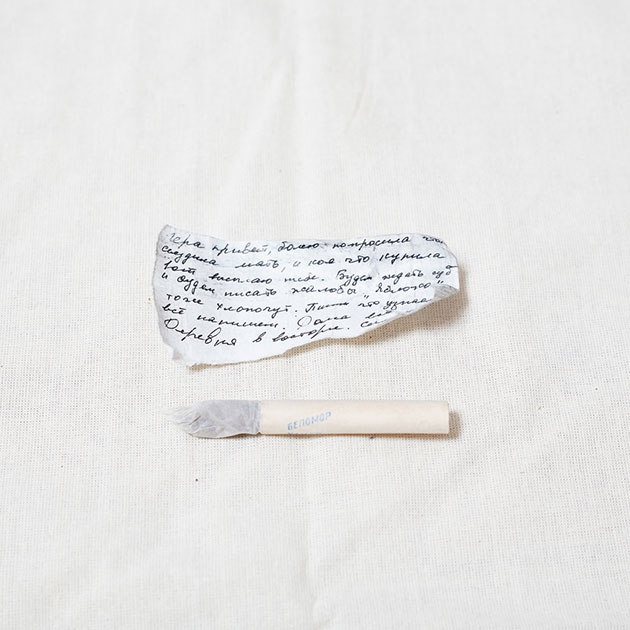 Гера привет, болею. попросила
мать, и кое что купила
вот высылаю тебе. Будем ждать суд
и будем писать жалобы "Яблоко"
тоже хлопочут. Пиши что узнаю
всё напишем. Дома всё
Деревня в восторге.
БЕЛОМОР